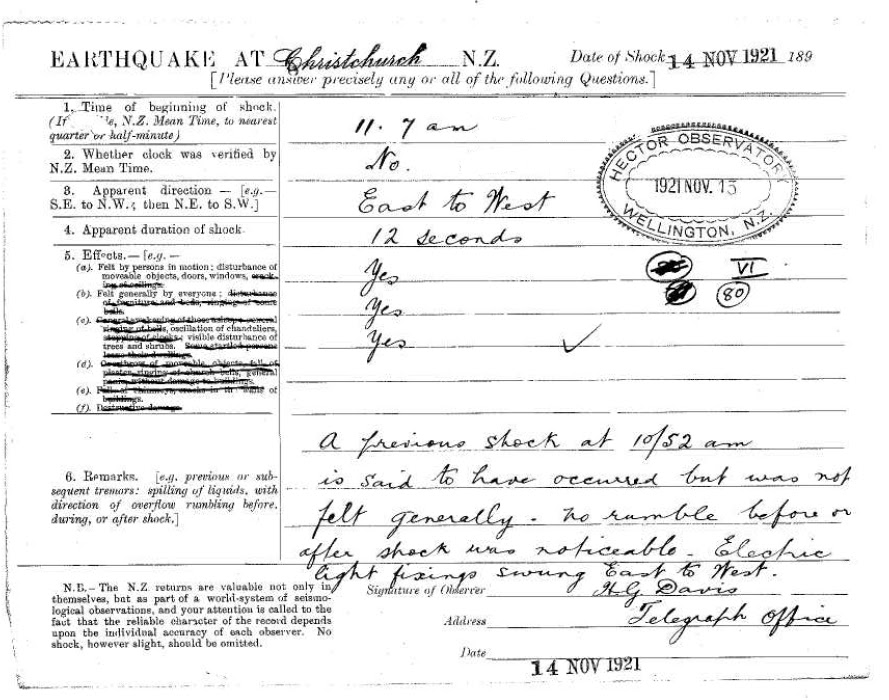 EARTHQUAKE AT Christchurch N.Z. Date of Shock 14 NOV 1921 189
[Please answer precisely any or all of the following Questions.]
1. Time of beginning of shock.
(If N.Z. Mean Time, to nearest
quarter or half-minute)
11. 7 am
2. Whether clock was verified by
N.Z. Mean Time.
No.
3. Apparent direction — [e.g.—
S.E. to N.W.; then N.E. to S.W.]
East to West
4. Apparent duration of shock
12 seconds
HECTOR OBSERVATORY
1921 NOV. 15
WELLINGTON, N.Z.
5. Effects.—[e.g.—
(a). Felt by persons in motion; disturbance of
moveable objects, doors, windows, crack-
ing of ceilings.
Yes
VI
(b). Felt generally by everyone; disturbance
of furniture and beds, ringing of some
bells.
Yes
80
(c). General awakening of those asleep, general
ringing of bells, oscillation of chandeliers,
stopping of clocks; visible disturbance of
trees and shrubs. Some startled persons
leave their dwellings.
Yes ✓
(d). Overthrow of moveable objects, fall of
plaster, ringing of church bells, general
panic, without damage to buildings.
(e). Fall of chimneys, cracks in walls of
buildings.
(f). Destructive damage
6. Remarks. [e.g. previous or sub-
sequent tremors: spilling of liquids, with
direction of overflow rumbling before,
during, or after shock.]
A previous shock at 10/52 am
is said to have occurred but was not
felt generally - no rumble before or
after shock was noticeable - Electric
light fixings swung East to West.
N.B.—The N.Z. returns are valuable not only in
themselves, but as part of a world-system of seismo-
logical observations, and your attention is called to the
fact that the reliable character of the record depends
upon the individual accuracy of each observer. No
shock, however slight, should be omitted.
Signature of Observer H G Davis
Address Telegraph Office
Date 14 NOV 1921